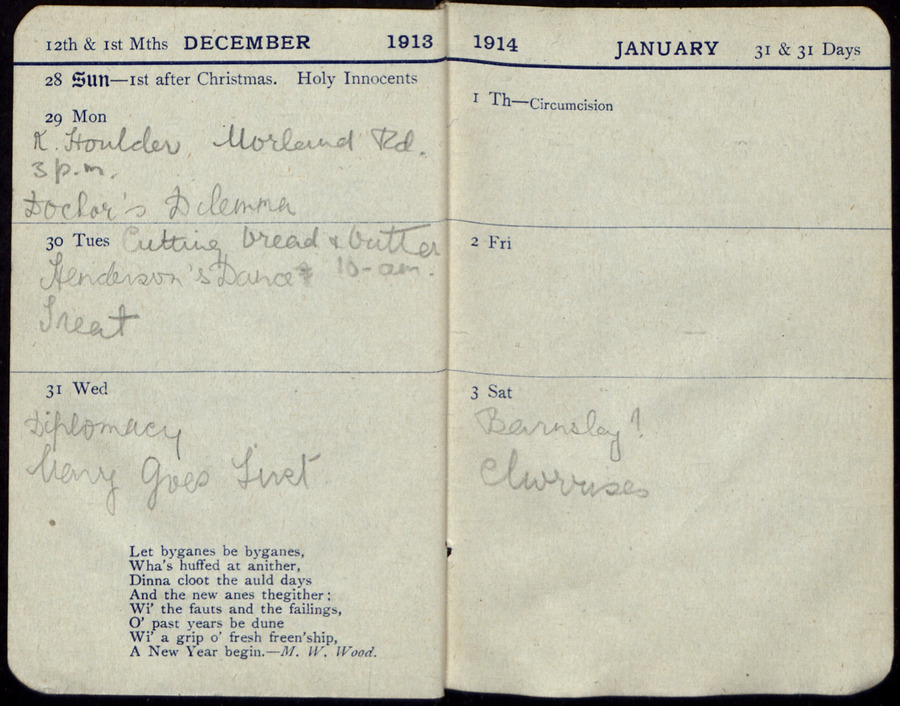 12th & 1st Mths DECEMBER 1913
28 Sun—1st after Christmas. Holy Innocents
29 Mon
K. Houlder Morland Rd.
3 p.m.
Doctor's Dilemma
30 Tues Cutting bread & butter
Henderson's Dance 10-am.
Treat
31 Wed
Diplomacy
Mary Goes First
Let byganes be byganes,
Wha's huffed at anither,
Dinna cloot the auld days
And the new anes thegither;
Wi' the fauts and the failings,
O' past years be dune
Wi' a grip o' fresh freen'ship,
A New Year begin.—M. W. Wood.
1914 JANUARY 31 & 31 Days
1 Th—Circumcision
2 Fri
3 Sat
Barnsley?